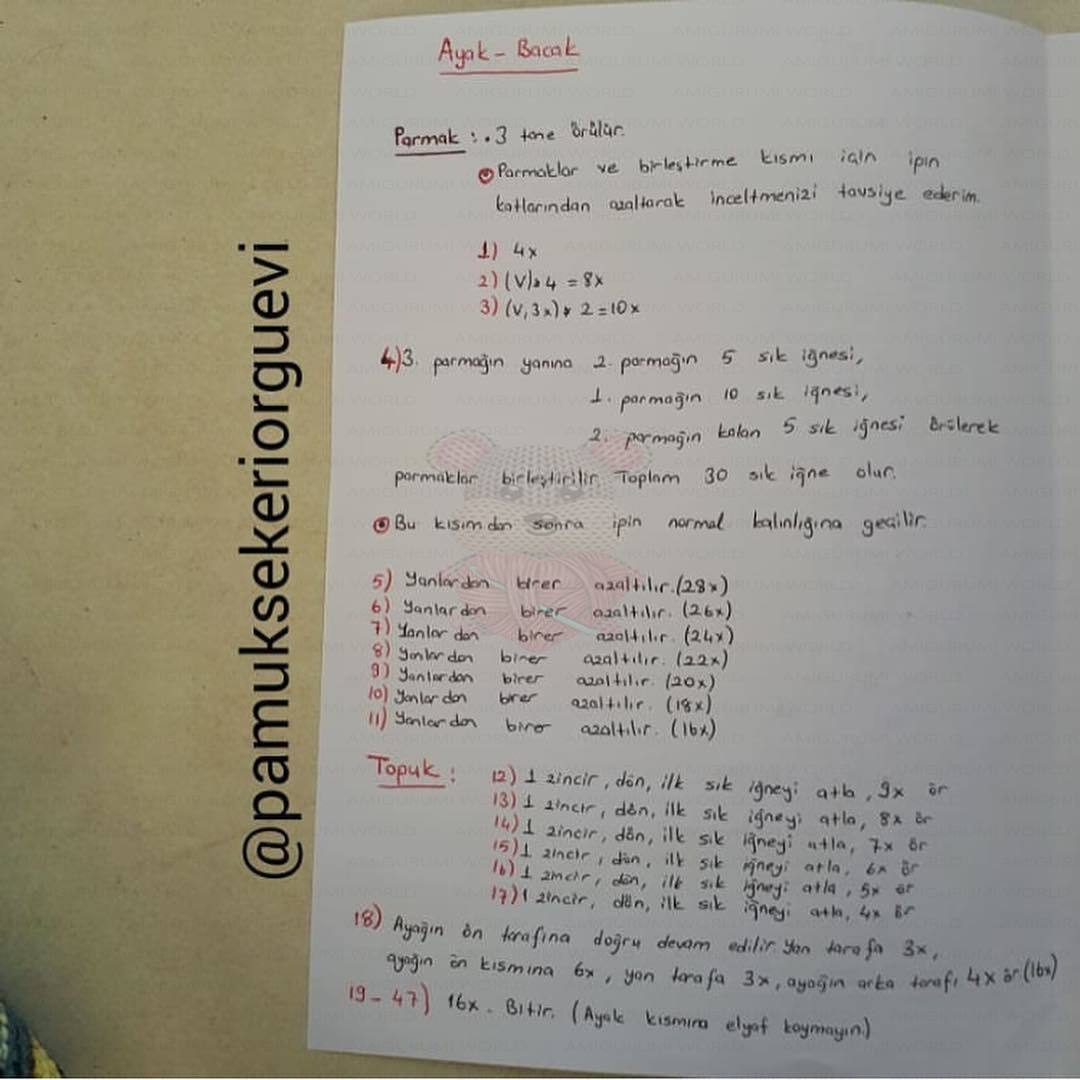 Ayak - Bacak
Parmak : . 3 tane örülür.
Parmaklar ve birleştirme kısmı için ipin
katlarından azaltarak inceltmenizi tavsiye ederim.
1) 4x
2) (V)*4 = 8x
3) (V, 3x) * 2 = 10x
4) 3. parmağın yanına 2. parmağın 5 sık iğnesi,
1. parmağın 10 sık iğnesi,
2. parmağın kalan 5 sık iğnesi örülerek
parmaklar birleştirilir. Toplam 30 sık iğne olur.
Bu kısımdan sonra ipin normal kalınlığına geçilir.
5) Yanlardan birer azaltılır. (28x)
6) Yanlardan birer azaltılır. (26x)
7) Yanlardan birer azaltılır. (24x)
8) Yanlardan birer azaltılır. (22x)
9) Yanlardan birer azaltılır. (20x)
10) Yanlardan birer azaltılır. (18x)
11) Yanlardan birer azaltılır. (16x)
Topuk : 12) 1 zincir, dön, ilk sık iğneyi atla, 9x ör
13) 1 zincir, dön, ilk sık iğneyi atla, 8x ör
14) 1 zincir, dön, ilk sık iğneyi atla, 7x ör
15) 1 zincir, dön, ilk sık iğneyi atla, 6x ör
16) 1 zincir, dön, ilk sık iğneyi atla, 5x ör
17) 1 zincir, dön, ilk sık iğneyi atla, 4x ör
18) Ayağın ön tarafına doğru devam edilir. Yan tarafa 3x,
ayağın ön kısmına 6x, yan tarafa 3x, ayağın arka tarafı 4x ör (16x)
19 - 47) 16x. Bitir. (Ayak kısmına elyaf koymayın.)
@pamuksekeriorguevi